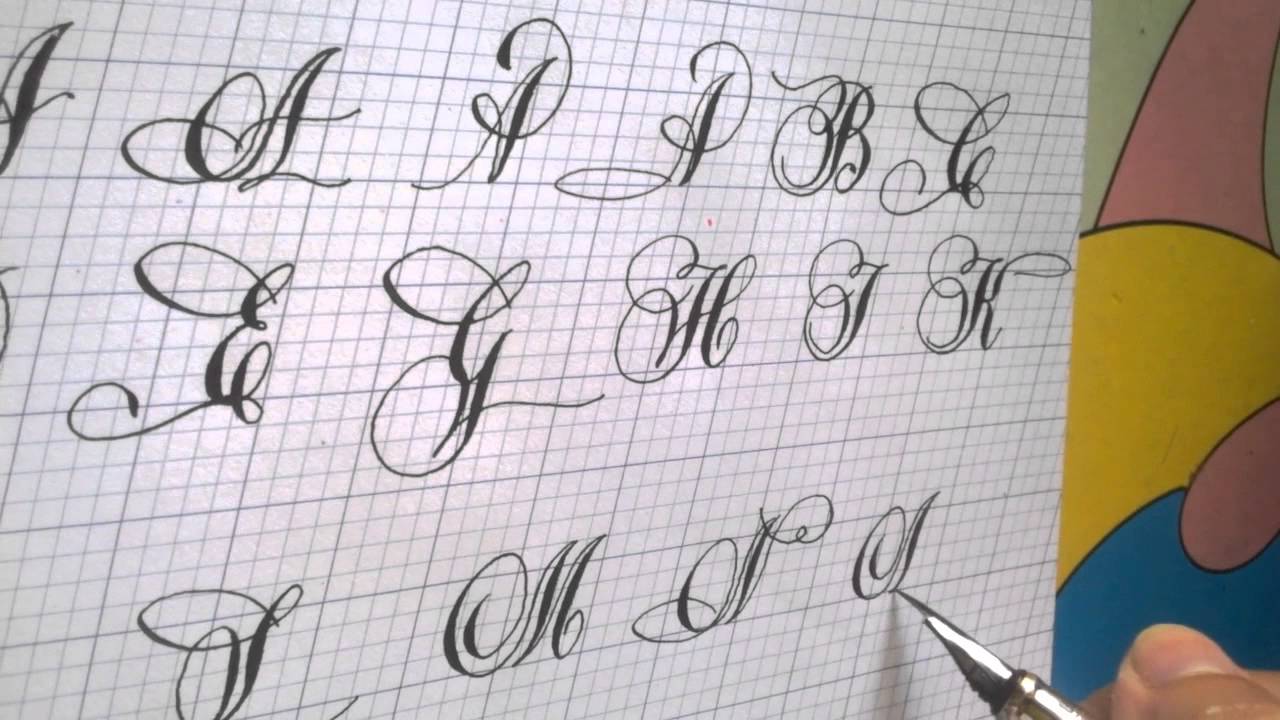 A A A B C
E G H I K
L M N